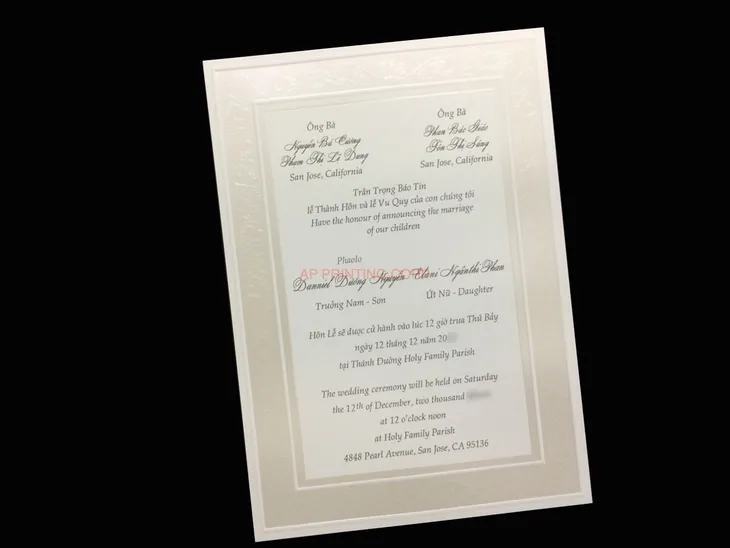 Ông Bà
Nguyễn Bá Cường
Phạm Thị Lệ Dung
San Jose, California
Ông Bà
Phan Bác Giáo
Tôn Thị Sáng
San Jose, California
Trân Trọng Báo Tin
lễ Thành Hôn và lễ Vu Quy của con chúng tôi
Have the honour of announcing the marriage
of our children
Phaolo
Danniel Dương Nguyễn
Trưởng Nam - Son
Clani Ngânthi Phan
Út Nữ - Daughter
AP PRINTING
Hôn Lễ sẽ được cử hành vào lúc 12 giờ trưa Thứ Bảy
ngày 12 tháng 12 năm 20
tại Thánh Đường Holy Family Parish
The wedding ceremony will be held on Saturday
the 12th of December, two thousand
at 12 o'clock noon
at Holy Family Parish
4848 Pearl Avenue, San Jose, CA 95136